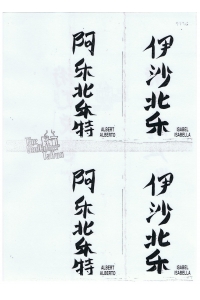 阿乐北乐特
ALBERT
ALBERTO
伊沙北乐
ISABEL
ISABELLA
阿乐北乐特
ALBERT
ALBERTO
伊沙北乐
ISABEL
ISABELLA